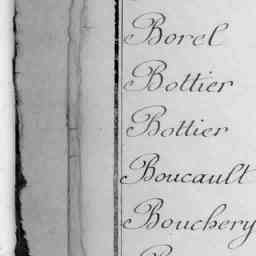 Borel
Bottier
Bottier
Boucault
Bouchery